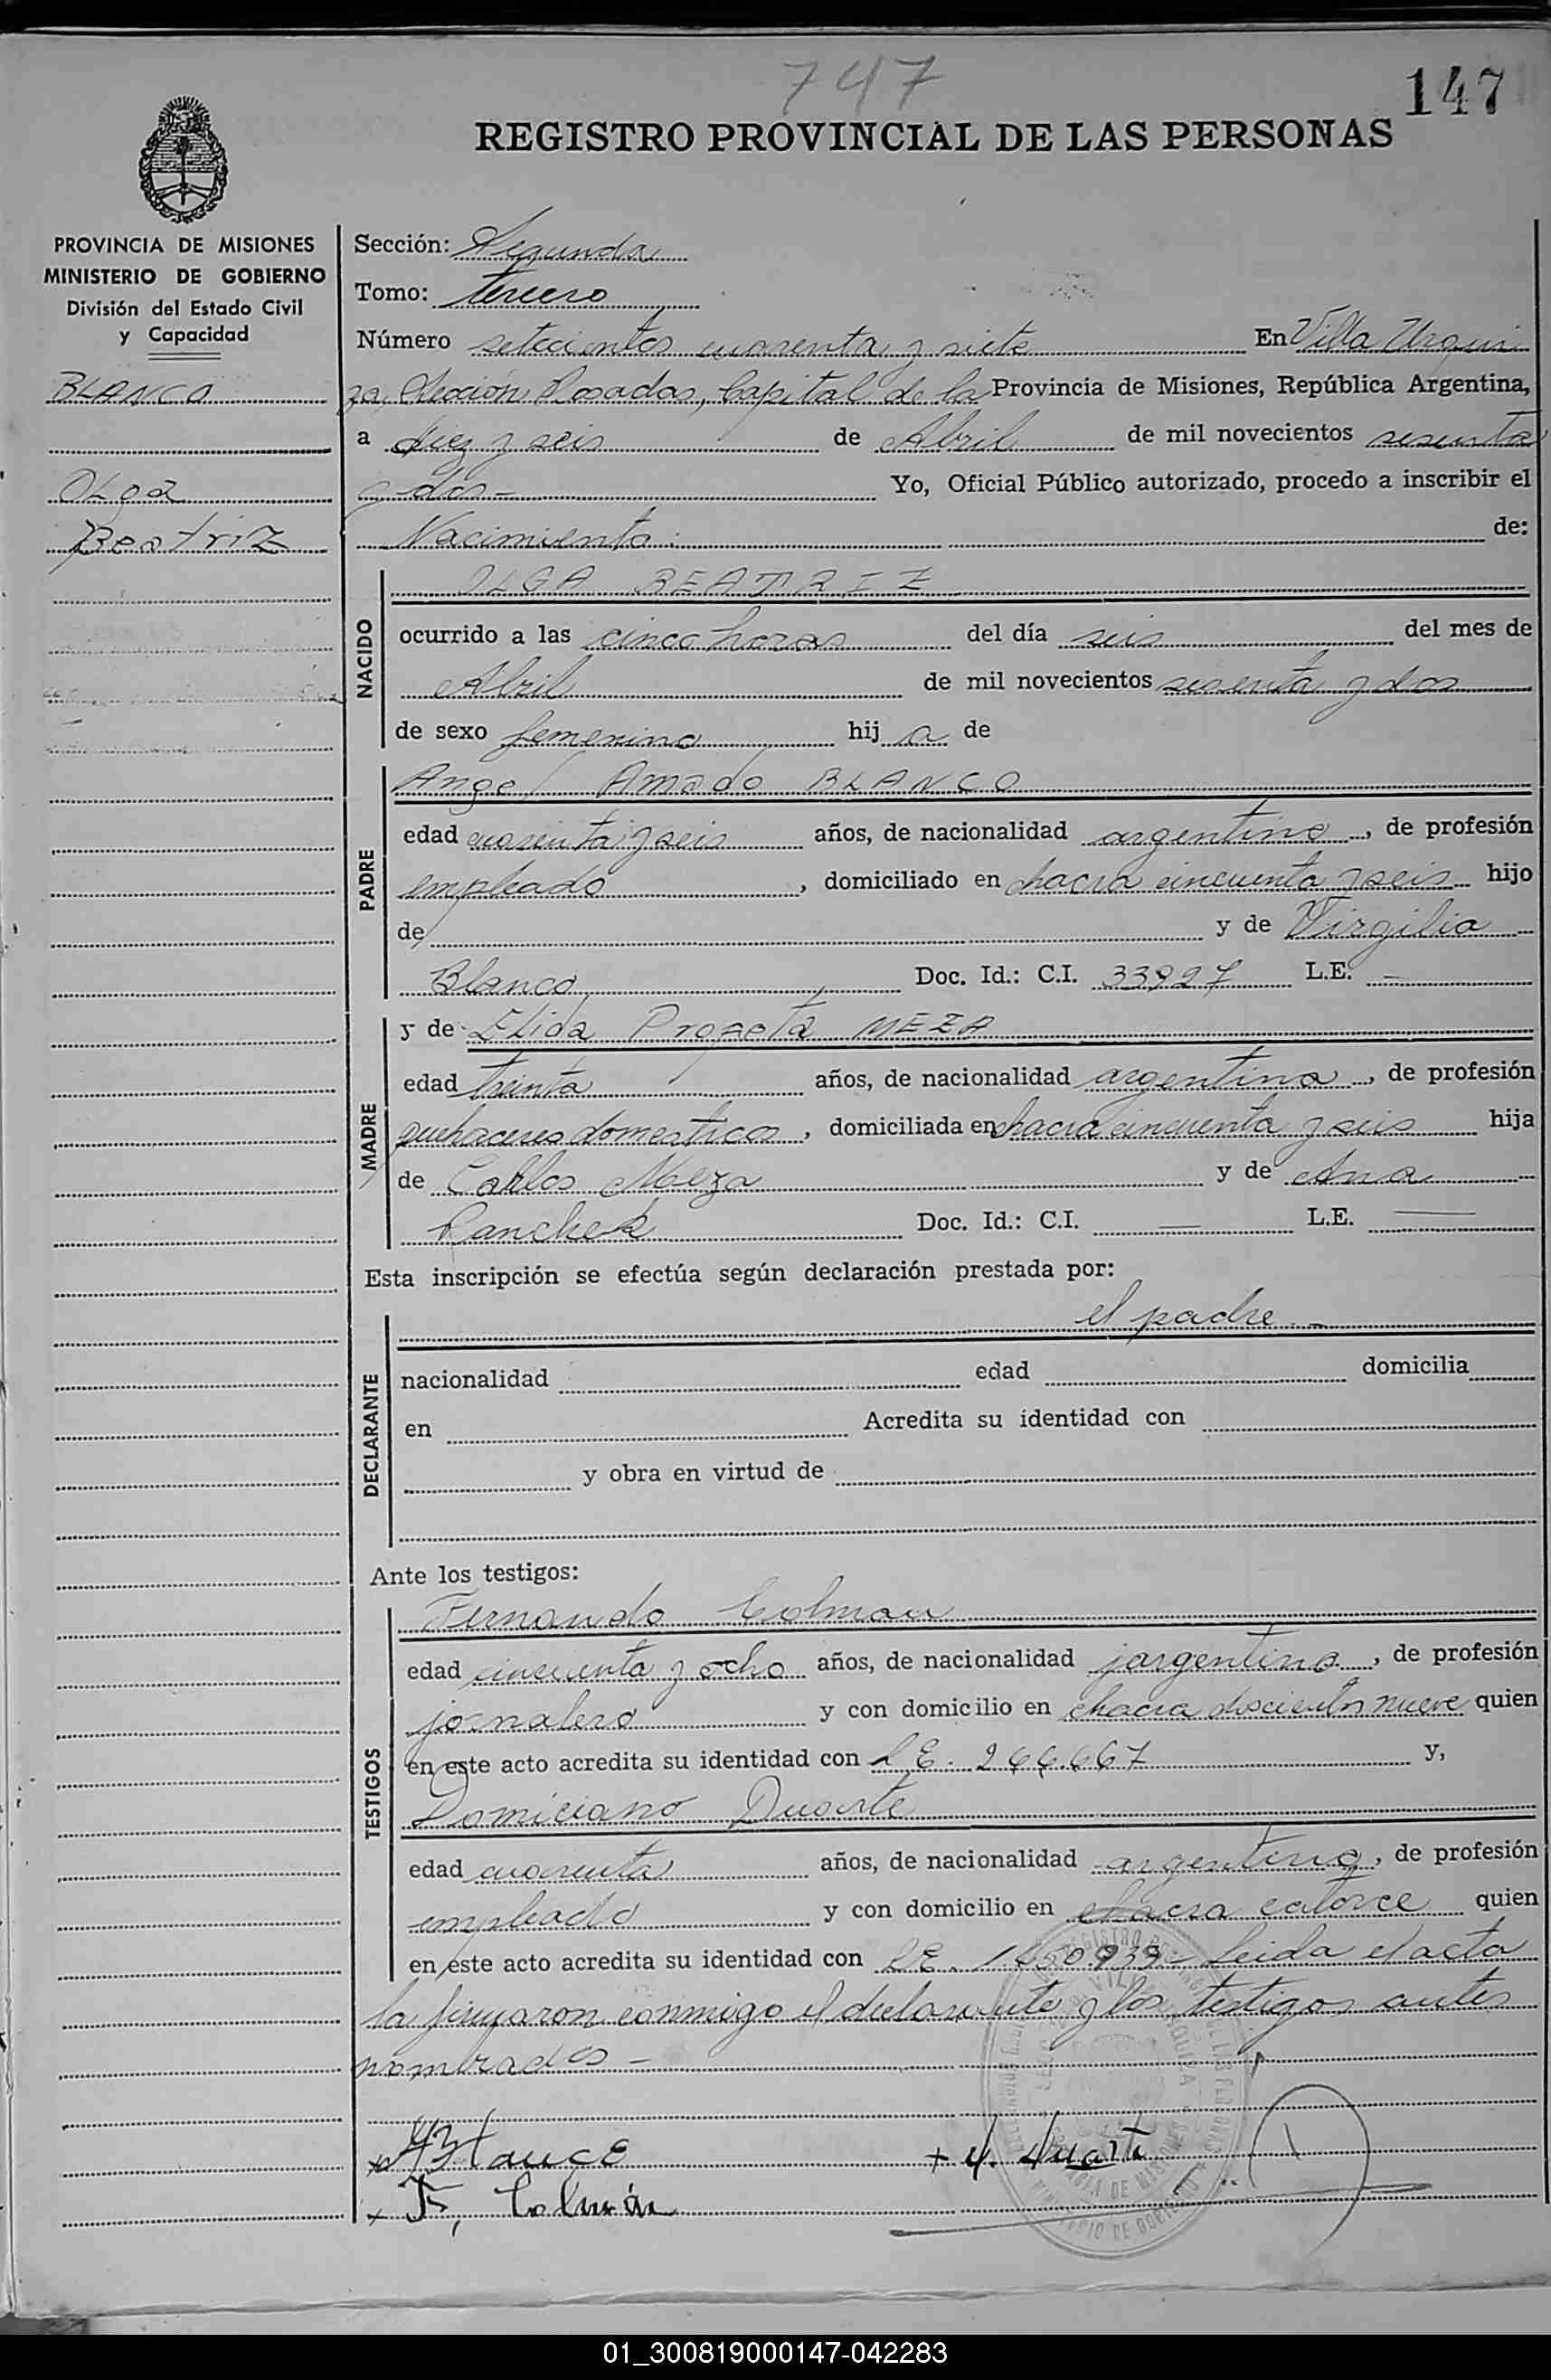 747
147
REGISTRO PROVINCIAL DE LAS PERSONAS
PROVINCIA DE MISIONES
MINISTERIO DE GOBIERNO
División del Estado Civil
y Capacidad
BLANCO
Olga
Beatriz
Sección: Segunda
Tomo: tercero
Número setecientos cuarenta y siete En Villa Urqui
za, Sección Posadas, Capital de la Provincia de Misiones, República Argentina,
a diez y seis de Abril de mil novecientos sesenta
y dos - Yo, Oficial Público autorizado, procedo a inscribir el
Nacimiento: de:
NACIDO
OLGA BEATRIZ
ocurrido a las cinco horas del día seis del mes de
Abril de mil novecientos sesenta y dos
de sexo femenino hij a de
PADRE
Angel Amado BLANCO
edad cuarenta y seis años, de nacionalidad argentino, de profesión
empleado, domiciliado en chacra cincuenta y seis hijo
de y de Virgilia
Blanco Doc. Id.: C.I. 33927 L.E. —
MADRE
y de Elida MEZA
edad treinta años, de nacionalidad argentina, de profesión
quehaceres domesticos, domiciliada en chacra cincuenta y seis hija
de Carlos Meza y de Ana
Doc. Id.: C.I. — L.E. —
Esta inscripción se efectúa según declaración prestada por:
DECLARANTE
el padre -
nacionalidad edad domicilia
en Acredita su identidad con
y obra en virtud de
Ante los testigos:
TESTIGOS
Fernando Colman
edad cincuenta y ocho años, de nacionalidad argentino, de profesión
jornalero y con domicilio en chacra doscientos nueve quien
en este acto acredita su identidad con L.E. y,
Domiciano Duarte
edad cuarenta años, de nacionalidad argentino, de profesión
empleado y con domicilio en chacra catorce quien
en este acto acredita su identidad con L.E. Leida el acta
la firmaron conmigo el declarante y los testigos antes
nombrados -
F. Colmán
Duarte
01_300819000147-042283